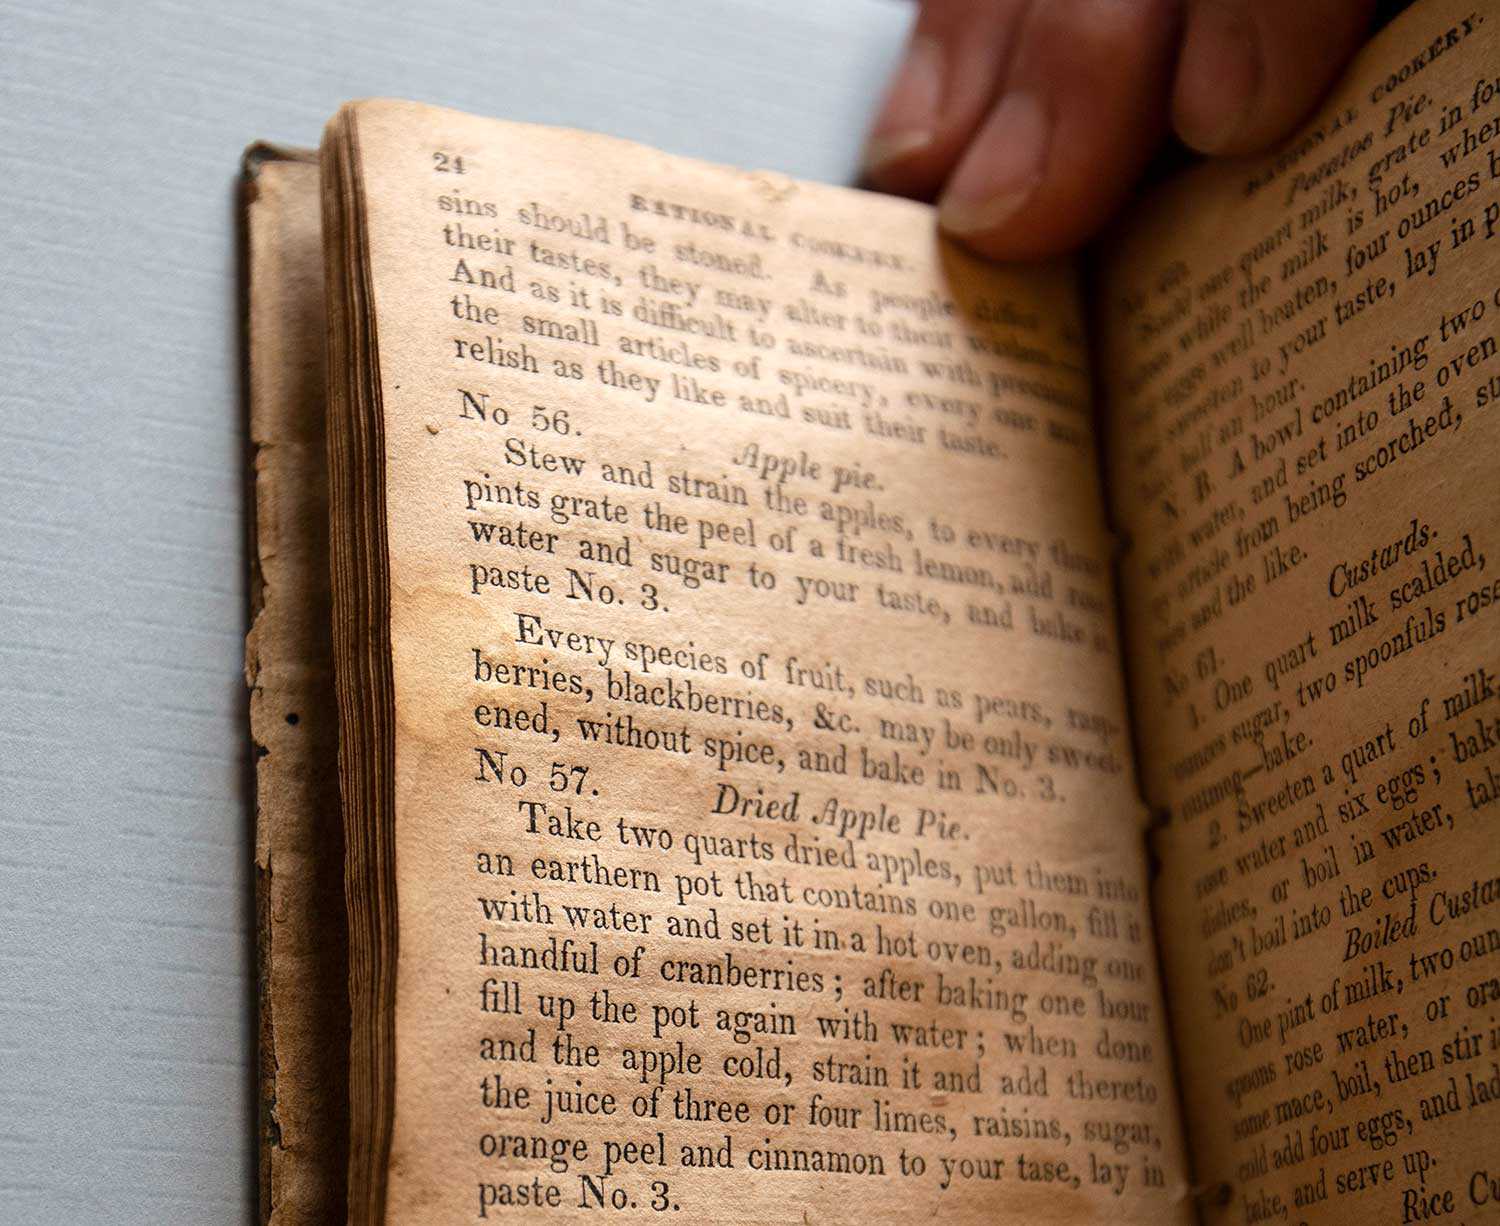 24
RATIONAL COOKERY.
sins should be stoned. As people differ
their tastes, they may alter to their wishes.
And as it is difficult to ascertain with precision
the small articles of spicery, every one may
relish as they like and suit their taste.
No 56.
Apple pie.
Stew and strain the apples, to every three
pints grate the peel of a fresh lemon, add rose
water and sugar to your taste, and bake in
paste No. 3.
Every species of fruit, such as pears, rasp-
berries, blackberries, &c. may be only sweet-
ened, without spice, and bake in No. 3.
No 57.
Dried Apple Pie.
Take two quarts dried apples, put them into
an earthern pot that contains one gallon, fill it
with water and set it in a hot oven, adding one
handful of cranberries; after baking one hour
fill up the pot again with water; when done
and the apple cold, strain it and add thereto
the juice of three or four limes, raisins, sugar,
orange peel and cinnamon to your tase, lay in
paste No. 3.
RATIONAL COOKERY.
Potatoe Pie.
Scald one quart milk, grate in
while the milk is hot,
eggs well beaten, four ounces
sweeten to your taste, lay in
half an hour.
N. B. A bowl containing two
with water, and set into the oven
article from being scorched,
and the like.
Custards.
No 61.
1. One quart milk scalded,
ounces sugar, two spoonfuls
nutmeg—bake.
2. Sweeten a quart of milk,
rose water and six eggs;
dishes, or boil in water,
don't boil into the cups.
Boiled
No 62.
One pint of milk, two
spoons rose water, or
some mace, boil, then stir
cold add four eggs, and
bake, and serve up.
Rice